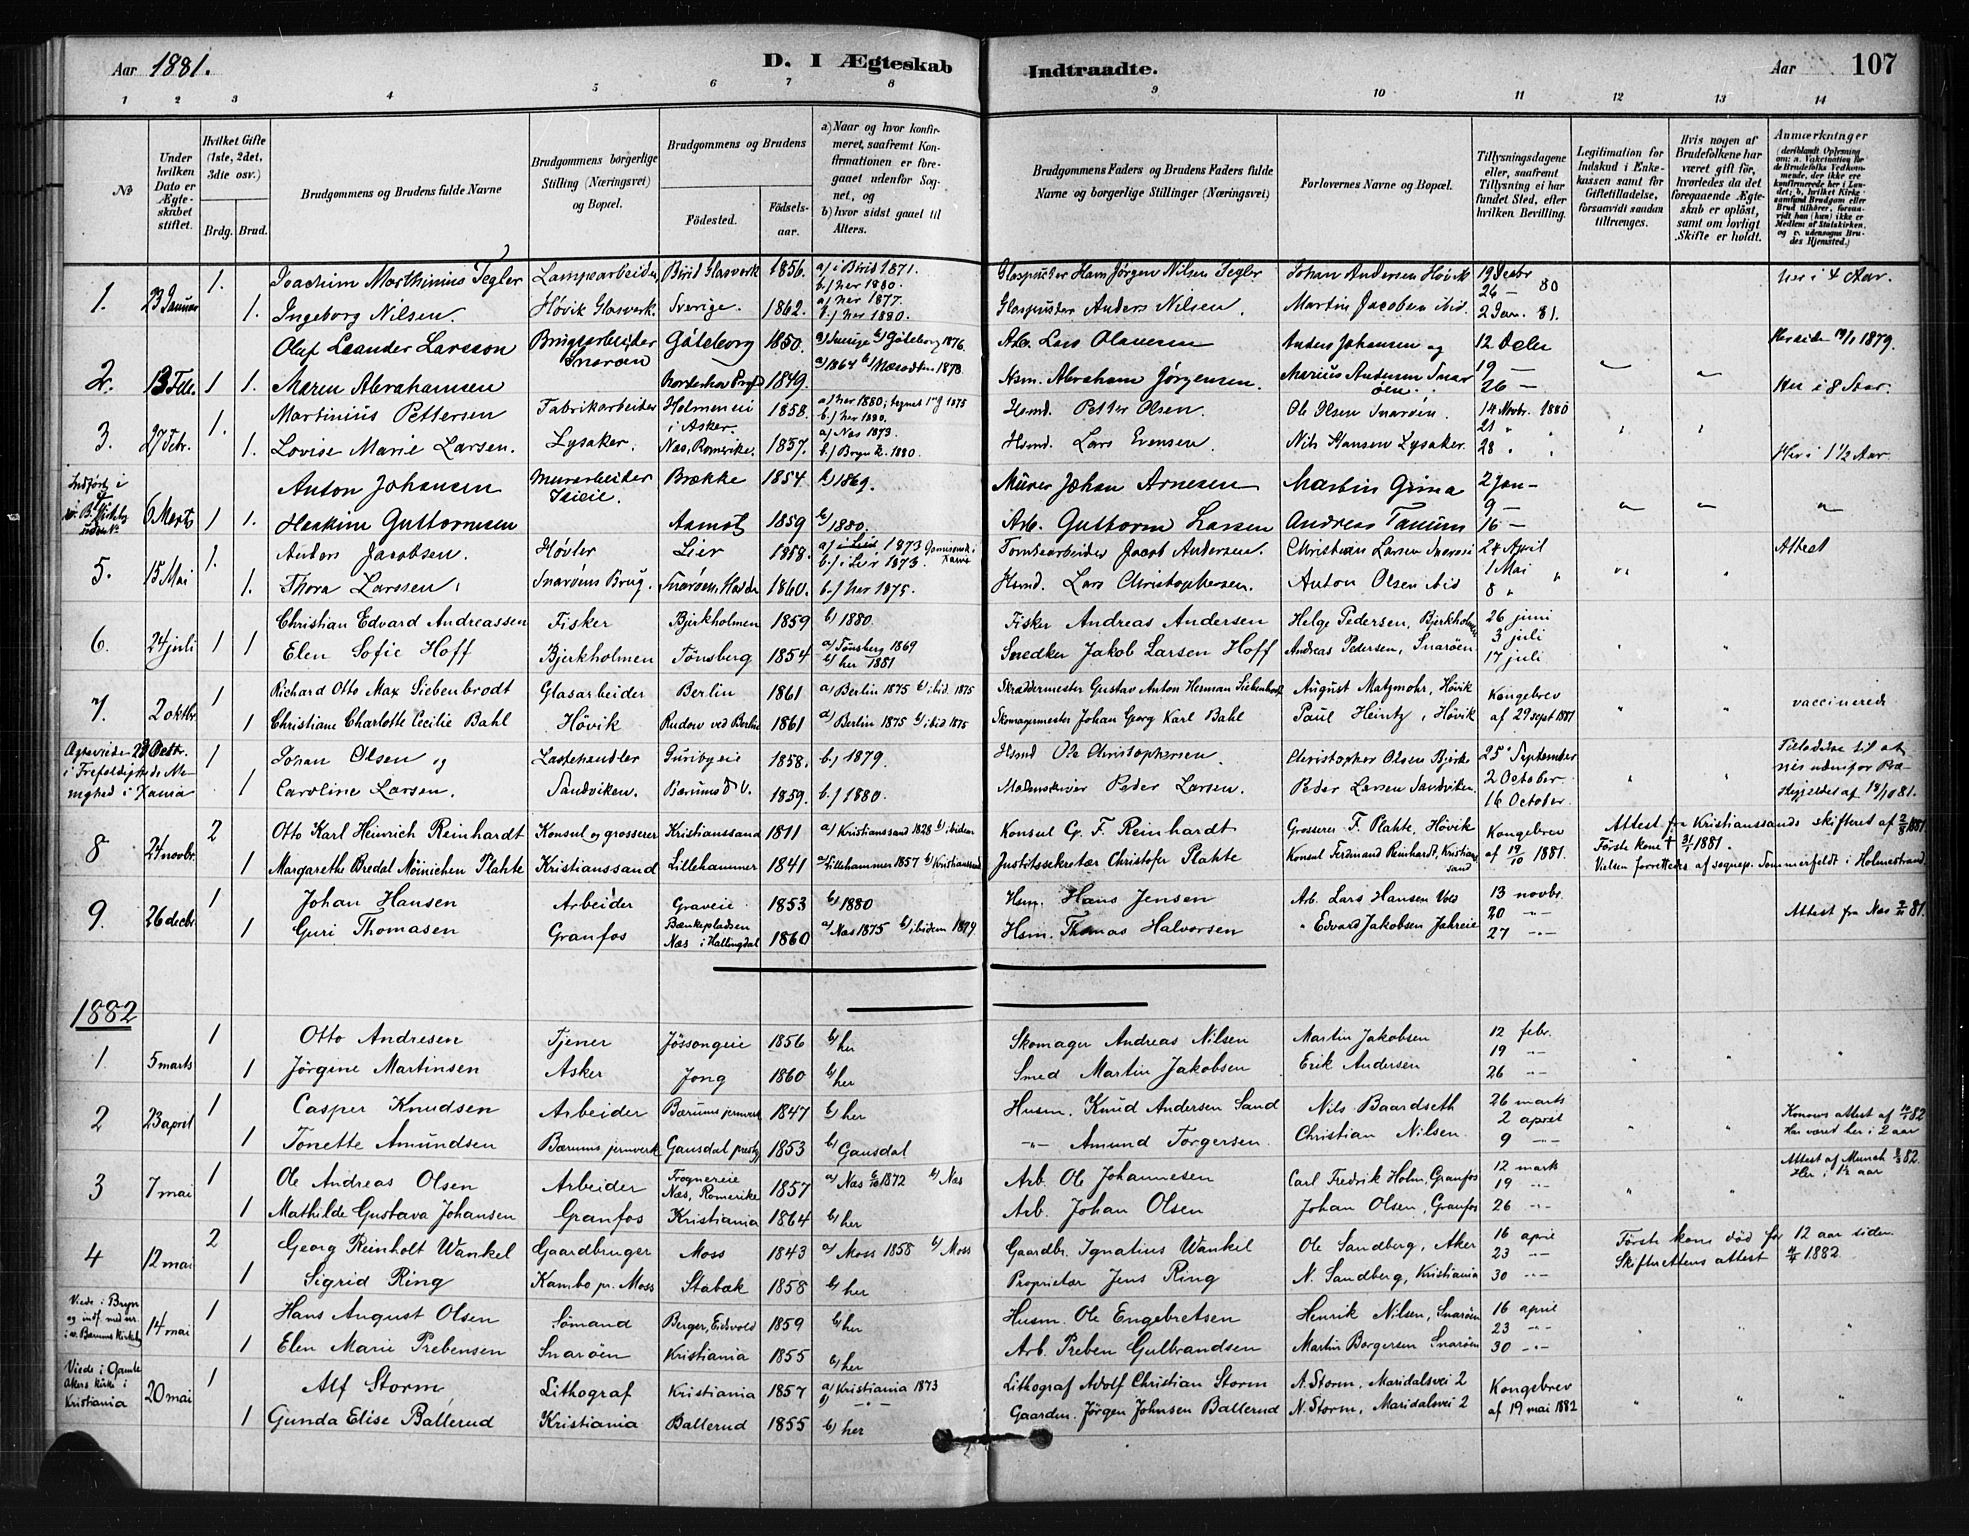 Aar 1881. D. I Ægteskab Indtraadte. Aar 107
1 2 3 4 5 6 7 8 9 10 11 12 13 14
No
Under hvilken Dato er Ægteskabet stiftet.
Hvilket Gifte (1ste, 2det, 3die osv.)
Brdg. Brud.
Brudgommens og Brudens fulde Navne
Brudgommens borgerlige Stilling (Næringsvei) og Bopæl.
Brudgommens og Brudens
Fødested. Fødselsaar.
a) Naar og hvor konfirmeret, saafremt Konfirmationen er foregaaet udenfor Sognet, og
b) hvor sidst gaaet til Alters.
Brudgommens Faders og Brudens Faders fulde Navne og borgerlige Stillinger (Næringsvei)
Forlovernes Navne og Bopæl.
Tillysningsdagene eller, saafremt Tillysning ei har fundet Sted, efter hvilken Bevilling.
Legitimation for Indskud i Enkekassen samt for Giftetilladelse, forsaavidt saadan tiltrænges.
Hvis nogen af Brudefolkene har været gift før, hvorledes da det foregaaende Ægteskab er opløst, samt om lovligt Skifte er holdt.
Anmærkninger (deriblandt Oplysning om: a. Vaccination for de Brudefolks Vedkommende, der ikke ere konfirmerede her i Landet; b. hvilket Kirkesamfund Brudgom eller Brud tilhører, forsaavidt han (hun) ikke er Medlem af Statskirken, og c. udensogns Brudes Hjemsted.)
1. 23 Januar 1. Joachim Marthinius Tegler Lampearbeider, Birid Glasverk 1856. a) i Birid 1871. b) her 1880. Glaspuster Hans Jørgen Nilsen Tegler Johan Andersen Høvik 19 Decbr 26 — 80 Her i 4 Aar.
1. Ingeborg Nilsen. Høvik Glasverk. Sverige. 1862. a) her 1877. b) her 1880. Glaspuster Anders Nilsen. Martin Jacobsen ibid. 2 Jan. 81.
2. 13 Feb. 1 Oluf Leander Larsson Brugsarbeider Snarøen Göteborg 1850. a) Sverige b) Göteborg 1876. Arb. Lars Olausen Anders Johansen og 12 Dcbr
1. Maren Abrahamsen 1849. a) 1864 Hsm. Abraham Jörgensen. Marius Andersen Snarøen. 19 — 26 — Her i 8 Aar.
3. 27 Febr. 1. Martinius Pettersen Fabrikarbeider Holmen ei i Asker. 1858. b.) her 1880. Hsmd. Petter Olsen. Ole Olsen Snarøen. 14 Novbr. 1880 21 "
1. Lovise Marie Larsen. Lysaker. Næs, Romerike. 1857. a) Næs 1873. b.) Bryn k. 1880. Hsmd. Lars Evensen. Nils Hansen Lysaker. 28 " Her i 1 1/2 Aar.
6 Marts 1 Anton Johansen Murarbeider Brække 1854 b) 1869. Murer Johan Arnesen Martin Grina 2 Jan — 9 —
1. Guttormsen Aamot 1859 b) 1880. Arb. Guttorm Larsen Andreas Tanum 16 —
5. 15 Mai 1. Anton Jacobsen. Høvler Lier 1858. b.) i Lier 1873. Tomtearbeider Jacob Andersen. Christian Larsen 24 April 1 Mai Attest
1. Thora Larssen. Snarøens Brug. 1860. b.) her 1875. Hsmd. Lars Christophersen. Anton Olsen ibid 8 "
6. 24 juli 1 Christian Edvard Andreassen Fisker Bjerkholmen 1859 b) 1880. Fisker Andreas Andersen Helge Pedersen, Bjerkholmen 26 juni 3 juli
1 Elen Sofie Hoff Bjerkholmen Tønsberg 1854 a) Tønsberg 1869 b) her 1881 Snedker Jakob Larsen Hoff Andreas Pedersen, Snarøen 17 juli
7. 2 oktbr 1 Richard Otto Max Siebenbrodt Glasarbeider Berlin 1861 a) Berlin 1875 b) ibid. 1875 Skræddermester Gustav Anton Herman Siebenbrodt August Matzmohr, Høvik Kongebrev af 29 sept 1881 vaccinerede
1 Christiane Charlotte Cecilie Bahl Høvik Rudow ved Berlin 1861 a) Berlin 1875 b) ibid 1875 Skomagermester Johan Georg Karl Bahl Paul Heintz, Høvik
Ægteviede 23 Octbr. i Trefoldigheds Menighed i Xania
1 Johan Olsen og Lastehandler 1858. b.) 1879. Hsmd Ole Christophersen. Christopher Olsen Bjerke 25 September 2 October Tilladelse til at vies udenfor Præstegjeldet af 18/10 81.
1 Caroline Larsen. Sandviken. Bærums V. 1859. b.) 1880. Malmskriver Peder Larsen. Peder Larsen Sandviken. 16 October.
8 24 novbr. 2 Otto Karl Heinrich Reinhardt Konsul og grosserer Kristianssand 1811 a) Kristianssand 1828 b) ibidem Konsul G. F. Reinhardt Grosserer F. Plahte, Høvik Kongebrev af 19/10 1881. Attest fra Kristianssands skifteret af 1881 Første kone † 3/1 1881.
1 Margarethe Bredal Möinichen Plahte Kristianssand Lillehammer 1841 a) Lillehammer 1857 b) Kristianssand Justitssekretær Christofer Plahte Konsul Ferdinand Reinhardt, Kristianssand Vielsen forrettedes af sognepr. Sommerfeldt i Holmestrand.
9. 26 decbr 1 Johan Hansen Arbeider Graveie 1853 b) 1880 Hsm. Hans Jensen Arb. Lars Hansen Vold 13 novbr. 20 -"-
1 Guri Thomasen Granfos Bænkepladsen Næs i Hallingdal 1860 a) Næs 1875 b) ibidem Hsm. Thomas Halvorsen " Edvard Jakobsen Jahreie 27 -"- Attest fra Næs 81.
1882
1 5 marts 1 Otto Andresen Tjener Jössongeie 1856 b) her Skomager Andreas Nilsen Martin Jakobsen 12 febr. 19 -"-
1 Jörgine Martinsen Asker Jong 1860 b) her Smed Martin Jakobsen Erik Andersen 26 -"-
2 23 april 1 Casper Knudsen Arbeider Bærums jernverk 1847 b) her Husm. Knud Andersen Sand Nils Baardseth 26 marts 2 april Konows attest af 82 Har været her i 2 aar
1 Tonette Amundsen Bærums jernverk Gausdal prestgj 1853 b) Gausdal -"- Amund Torgersen Christian Nilsen 9 -"-
3 7 mai 1 Ole Andreas Olsen Arbeider Frognereie Næs, Romerike 1857 a) Næs 1872 b) Næs Arb. Ole Johannesen Carl Fredrik Holm, Granfos 12 marts 19 -"- Attest af Munch 82. Her i 1 1/2 aar
1 Mathilde Gustava Johansen Granfos Kristiania 1864 b) her Arb. Johan Olsen Johan Olsen, Granfos 26 -"-
4 12 mai 2 Georg Reinholt Wankel Gaardbruger Moss 1843 a) Moss 1858 b) Moss Gaardbr. Ignatius Wankel Ole Sandberg, Aker 16 april 23 -"- Første kone død for 12 aar siden Skifterettens attest 1882.
1 Sigrid Ring Kambo pr. Moss Stabæk 1858 b) her Proprietær Jens Ring N. Sandberg, Kristiania 30 -"-
Viede i Bryn og indf. med nr. i v. Bærums Kirkebog
14 mai 1 Hans August Olsen Sømand Berger, Eidsvold 1859 b) her Husm. Ole Engebretsen Henrik Nilsen, Snarøen 16 april 23 -"-
1 Elen Marie Prebensen Snarøen Kristiania 1855 b) her Arb. Preben Gulbrandsen Martin Borgersen Snarøen 30 -"-
Viede i Gamle Akers kirke i Kristiania
20 mai 1 Alf Storm Lithograf Kristiania 1857 a) Kristiania 1873 b) -"- Lithograf Adolf Christian Storm N. Storm, Maridalsvei 2 Kongebrev af 19 mai 1882
1 Gunda Elise Ballerud Kristiania Ballerud 1855 b) her Gaardm. Jörgen Johnsen Ballerud N. Storm, Maridalsvei 2